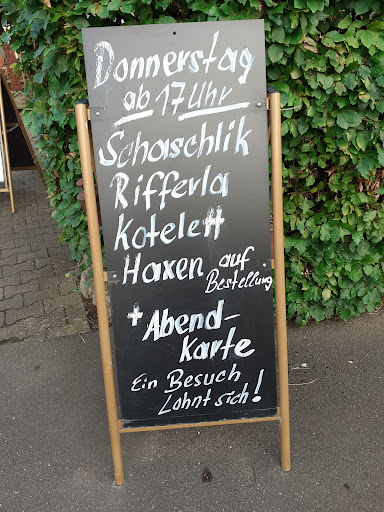 Donnerstag
ab 17 Uhr
Schaschlik
Rifferla
Kotelett
Haxen auf
Bestellung
+ Abend-
karte
Ein Besuch
Lohnt sich!